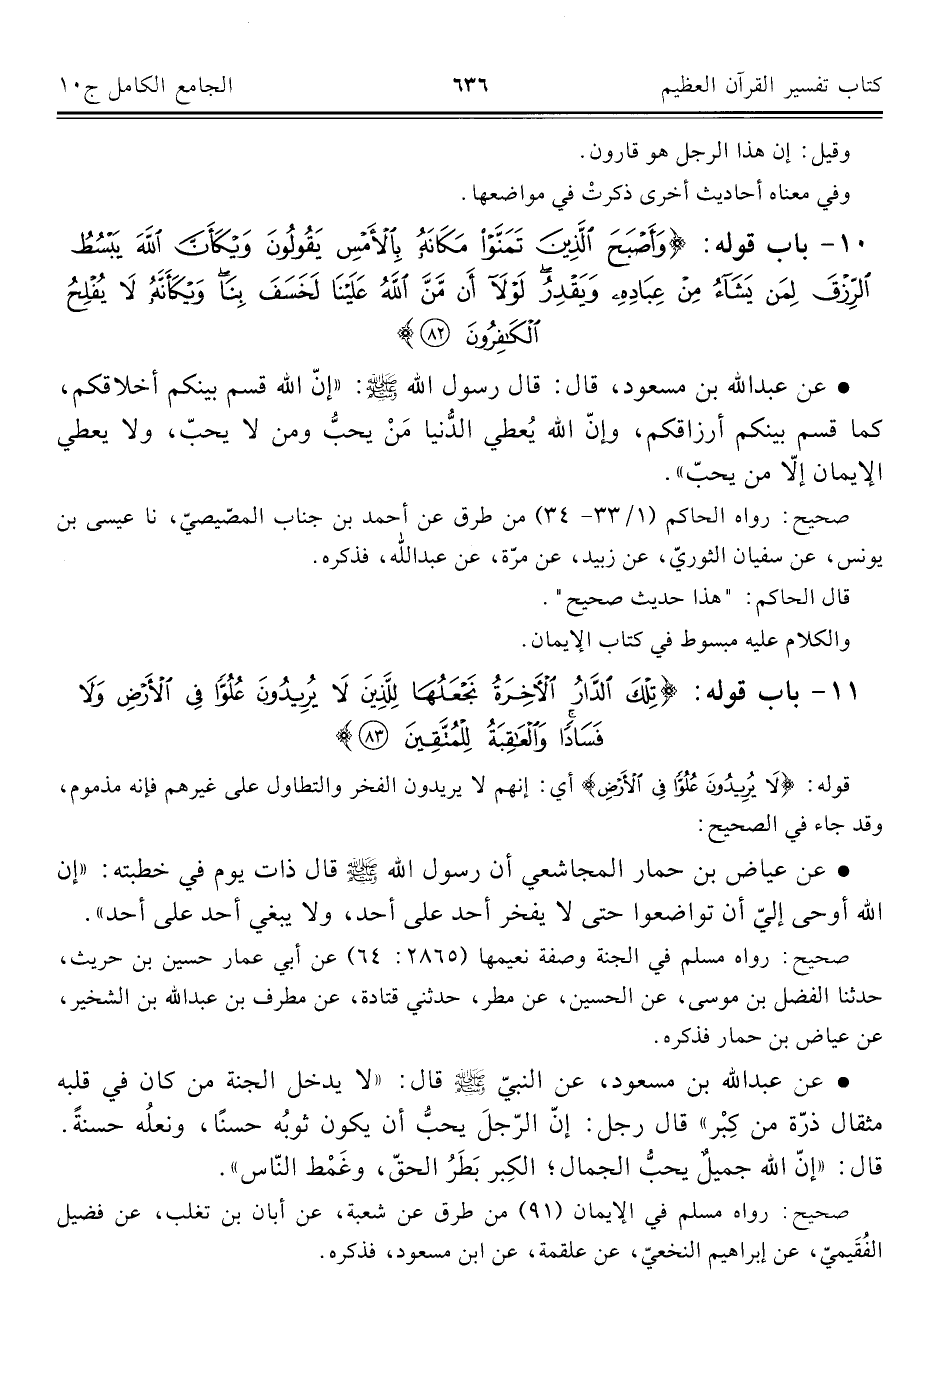 كتاب تفسير القرآن العظيم ٦٣٦ الجامع الكامل ج١٠
وقيل: إن هذا الرجل هو قارون.
وفي معناه أحاديث أخرى ذكرتْ في مواضعها.
١٠- باب قوله: ﴿وَأَصْبَحَ الَّذِينَ تَمَنَّوْا۟ مَكَانَهُۥ بِٱلْأَمْسِ يَقُولُونَ وَيْكَأَنَّ ٱللَّهَ يَبْسُطُ
ٱلرِّزْقَ لِمَن يَشَآءُ مِنْ عِبَادِهِۦ وَيَقْدِرُ ۖ لَوْلَآ أَن مَّنَّ ٱللَّهُ عَلَيْنَا لَخَسَفَ بِنَا ۖ وَيْكَأَنَّهُۥ لَا يُفْلِحُ
ٱلْكَٰفِرُونَ ٨٢﴾
• عن عبدالله بن مسعود، قال: قال رسول الله ﷺ: «إنّ الله قسم بينكم أخلاقكم،
كما قسم بينكم أرزاقكم، وإنّ الله يُعطي الدُّنيا مَنْ يحبُّ ومن لا يحبّ، ولا يعطي
الإيمان إلّا من يحبّ».
صحيح: رواه الحاكم (١/ ٣٣- ٣٤) من طرق عن أحمد بن جناب المصّيصيّ، نا عيسى بن
يونس، عن سفيان الثوريّ، عن زبيد، عن مرّة، عن عبدالله، فذكره.
قال الحاكم: "هذا حديث صحيح".
والكلام عليه مبسوط في كتاب الإيمان.
١١- باب قوله: ﴿تِلْكَ ٱلدَّارُ ٱلْأَخِرَةُ نَجْعَلُهَا لِلَّذِينَ لَا يُرِيدُونَ عُلُوًّا فِى ٱلْأَرْضِ وَلَا
فَسَادًا ۚ وَٱلْعَٰقِبَةُ لِلْمُتَّقِينَ ٨٣﴾
قوله: ﴿لَا يُرِيدُونَ عُلُوًّا فِى ٱلْأَرْضِ﴾ أي: إنهم لا يريدون الفخر والتطاول على غيرهم فإنه مذموم،
وقد جاء في الصحيح:
• عن عياض بن حمار المجاشعي أن رسول الله ﷺ قال ذات يوم في خطبته: «إن
الله أوحى إليّ أن تواضعوا حتى لا يفخر أحد على أحد، ولا يبغي أحد على أحد».
صحيح: رواه مسلم في الجنة وصفة نعيمها (٢٨٦٥: ٦٤) عن أبي عمار حسين بن حريث،
حدثنا الفضل بن موسى، عن الحسين، عن مطر، حدثني قتادة، عن مطرف بن عبدالله بن الشخير،
عن عياض بن حمار فذكره.
• عن عبدالله بن مسعود، عن النبيّ ﷺ قال: «لا يدخل الجنة من كان في قلبه
مثقال ذرّة من كِبْر» قال رجل: إنّ الرّجلَ يحبُّ أن يكون ثوبُه حسنًا، ونعلُه حسنةً.
قال: «إنّ الله جميلٌ يحبُّ الجمال؛ الكِبر بَطَرُ الحقّ، وغَمْط النّاس».
صحيح: رواه مسلم في الإيمان (٩١) من طرق عن شعبة، عن أبان بن تغلب، عن فضيل
الفُقَيميّ، عن إبراهيم النخعيّ، عن علقمة، عن ابن مسعود، فذكره.